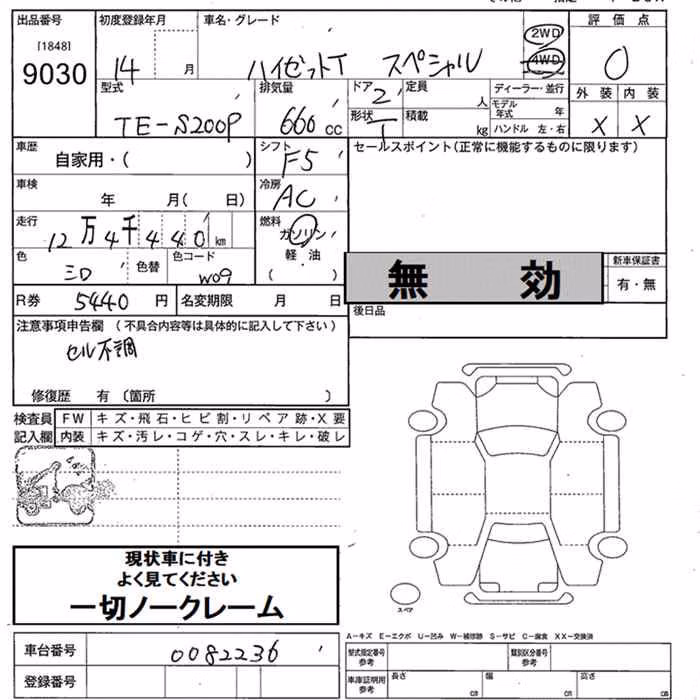 出品番号 初度登録年月 車名・グレード 評価点
[1848]
9030
14 月 ハイゼットT スペシャル 2WD 4WD 0
型式 排気量 ドア 2 定員 人 ディーラー・並行 外装 内装
TE-S200P 660 cc 形状 積載 kg モデル年式 年 ハンドル 左・右 X X
車歴 自家用・( ) シフト F5 セールスポイント(正常に機能するものに限ります)
車検 年 月( 日) 冷房 AC
走行 12万4千440km 燃料 ガソリン 軽油 ( )
色 シロ 色替 色コード W09
無効 新車保証書 有・無
R券 5440 円 名変期限 月 日 後日品
注意事項申告欄 (不具合内容等は具体的に記入して下さい)
セル不調
修復歴 有 〔箇所 〕
検査員 FW キズ・飛石・ヒビ割・リペア跡・X要
記入欄 内装 キズ・汚レ・コゲ・穴・スレ・キレ・破レ
現状車に付き
よく見てください
一切ノークレーム
スペア
A－キズ E－エクボ U－凹み W－補修跡 S－サビ C－腐食 XX－交換済
車台番号 0082236 型式指定番号 参考 類別区分番号 参考
登録番号 車庫証明用 参考 長さ cm 幅 cm 高さ cm